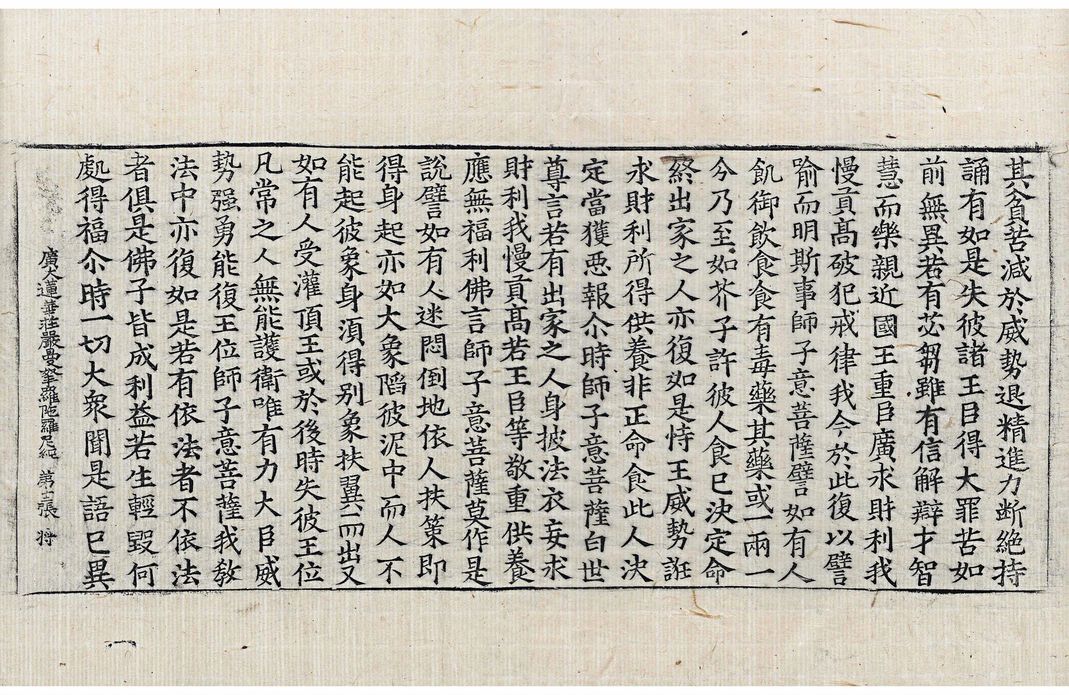 其貧苦減於威勢退精進力断絶持
誦有如是失彼諸王臣得大罪苦如
前無異若有苾芻雖有信解辯才智
慧而樂親近國王重臣廣求財利我
慢貢髙破犯戒律我今於此復以譬
喻而明斯事師子意菩薩譬如有人
飢御飲食食有毒藥其藥或一兩一
今乃至如芥子許彼人食已決定命
終出家之人亦復如是恃王威勢誑
求財利所得供養非正命食此人決
定當獲惡報尒時師子意菩薩白世
尊言若有出家之人身披法衣妄求
財利我慢貢髙若王臣等敬重供養
應無福利佛言師子意菩薩莫作是
說譬如有人迷悶倒地依人扶策即
得身起亦如大象陷彼泥中而人不
能起彼象身湏得別象扶翼而出又
如有人受灌頂王或於後時失彼王位
凡常之人無能護衛唯有力大臣威
勢强勇能復王位師子意菩薩我教
法中亦復如是若有依法者不依法
者俱是佛子皆成利益若生輕毀何
處得福尒時一切大衆聞是語已異
廣大蓮華莊嚴曼拏羅陁羅尼経 第 張 將